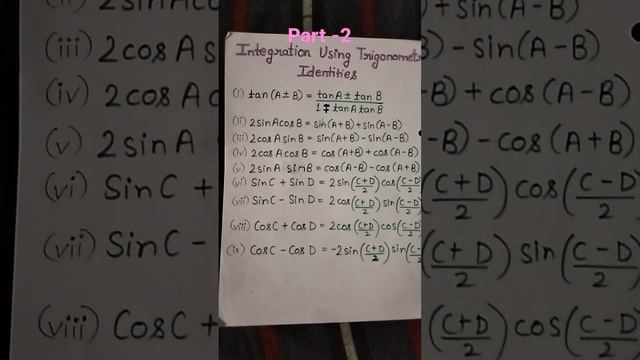 Part -2
Integration Using Trigonomet
Identities
(i) tan (A ± B) = tan A ± tan B / 1 ∓ tan A tan B
(ii) 2 sin A cos B = sin (A+B) + sin (A-B)
(iii) 2 cos A sin B = sin (A+B) - sin (A-B)
(iv) 2 cos A cos B = cos (A+B) + cos (A-B)
(v) 2 sin A sin B = cos (A-B) - cos (A+B)
(vi) Sin C + Sin D = 2 sin (C+D/2) cos (C-D
(vii) Sin C - Sin D = 2 cos (C+D/2) sin (C-D/2
(viii) Cos C + Cos D = 2 cos (C+D/2) cos (C-D/2
(ix) Cos C - Cos D = -2 sin (C+D/2) sin (C-
(iii) 2 cos A s
(iv) 2 cos A c
(v) 2 sin A
(vi) Sin C +
(vii) Sin C -
(viii) Cos C +
+ sin (A-B)
B) - sin (A-B)
B) + cos (A-B)
-B) - cos (A+B)
(C+D/2) cos (C-D/2)
(C+D/2) sin (C-D/2)
(C+D/2) cos (C-D/2)